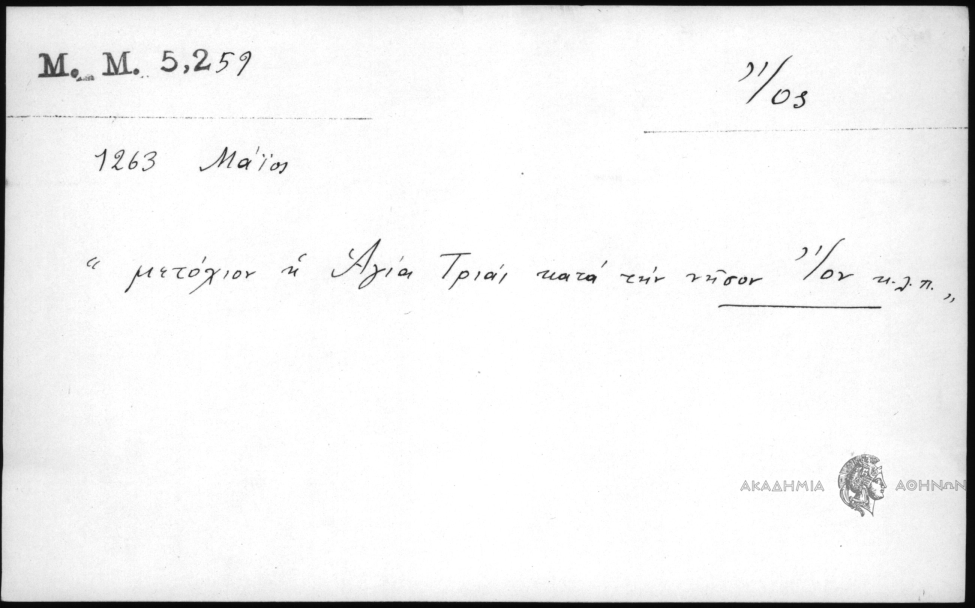 M. M. 5,259
Ἴος
1263 Μάϊος
“ μετόχιον ἡ Ἁγία Τριάς κατά τήν νῆσον Ἴον κ.λ.π. „
ΑΚΑΔΗΜΙΑ ΑΘΗΝΩΝ